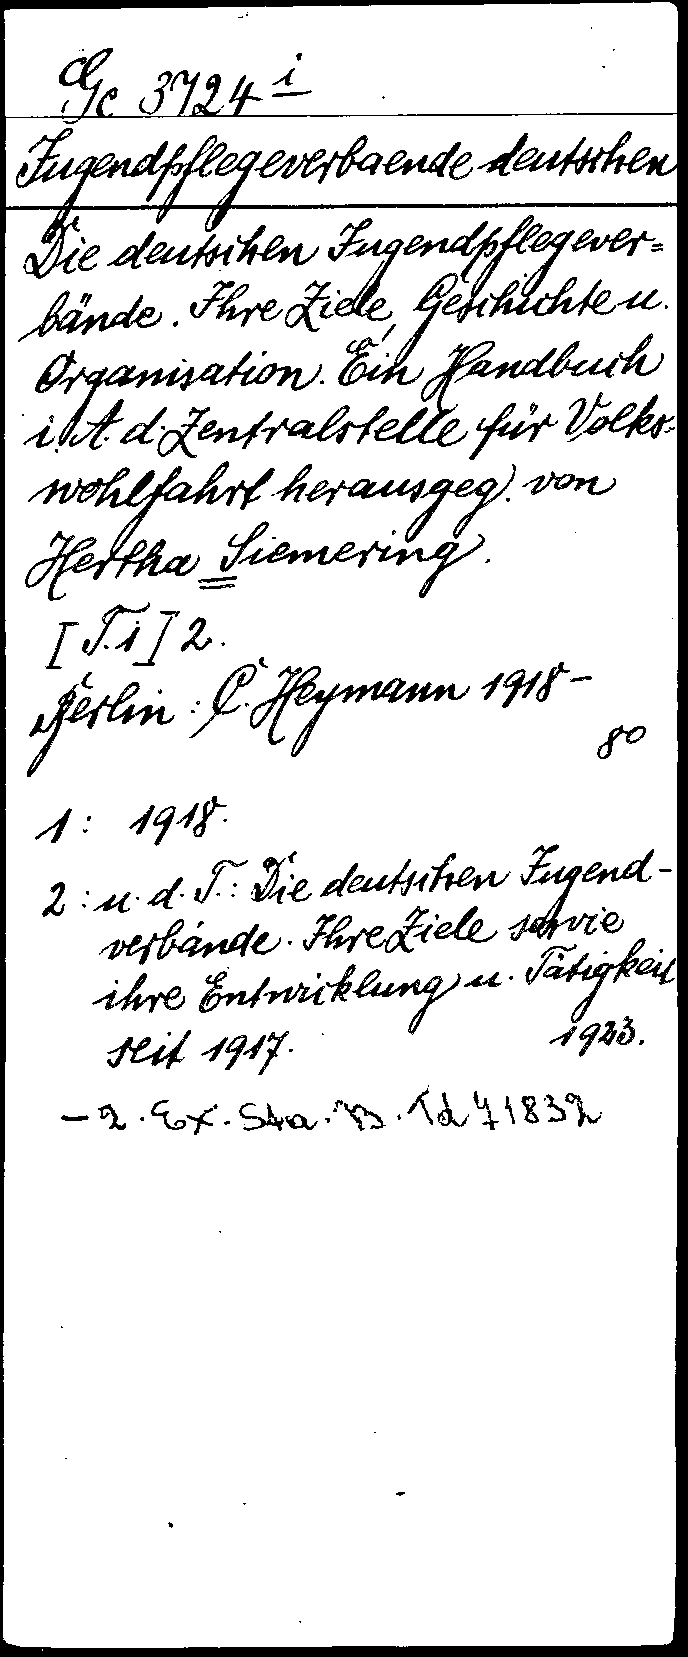 Gc 3724 i
Jugendpflegeverbaende deutschen
Die deutschen Jugendpflegever=
bände. Ihre Ziele, Geschichte u.
Organisation. Ein Handbuch
i. A. d. Zentralstelle für Volks=
wohlfahrt herausgeg. von
Hertha Siemering.
[T. 1] 2.
Berlin: C. Heymann 1918-
8o
1: 1918.
2: u. d. T.: Die deutschen Jugend-
verbände. Ihre Ziele sowie
ihre Entwicklung u. Tätigkeit
seit 1917. 1923.
- 2. Ex. Sta. B. Td 71832